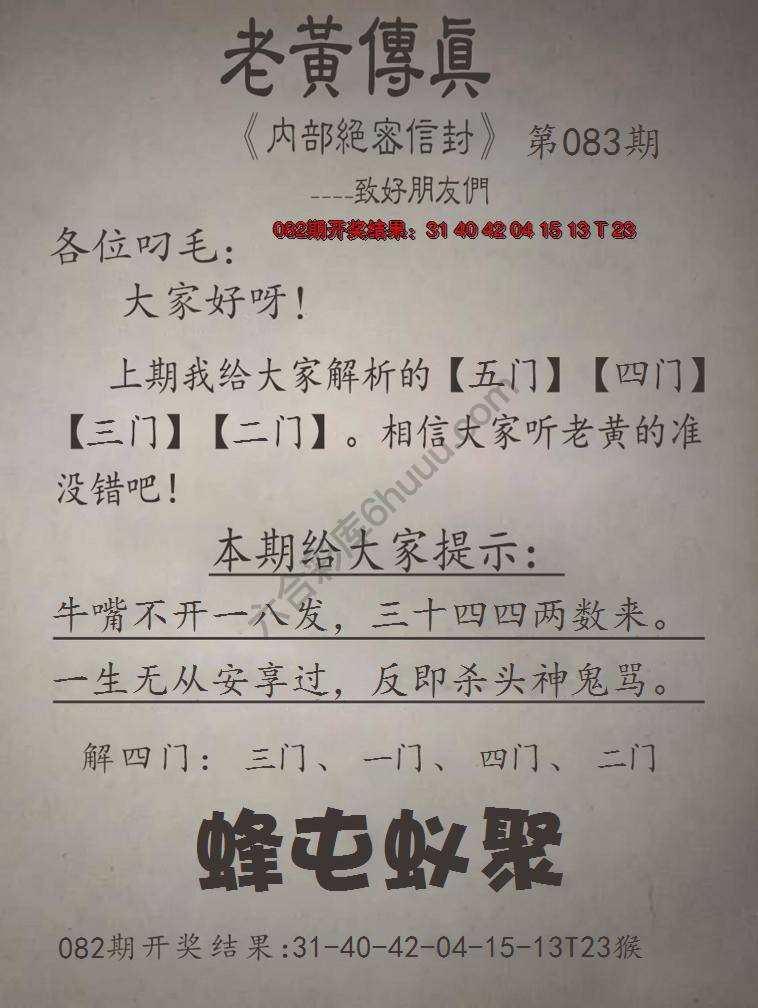 老黃傳眞
《内部絕密信封》 第083期
----致好朋友們
082期开奖结果：31 40 42 04 15 13 T 23
各位叼毛：
大家好呀！
上期我给大家解析的【五门】【四门】
【三门】【二门】。相信大家听老黄的准
没错吧！
本期给大家提示：
牛嘴不开一八发，三十四四两数来。
一生无从安享过，反即杀头神鬼骂。
解四门： 三门、 一门、 四门、 二门
蜂屯蚁聚
082期开奖结果:31-40-42-04-15-13T23猴
六合彩库6huuu.com